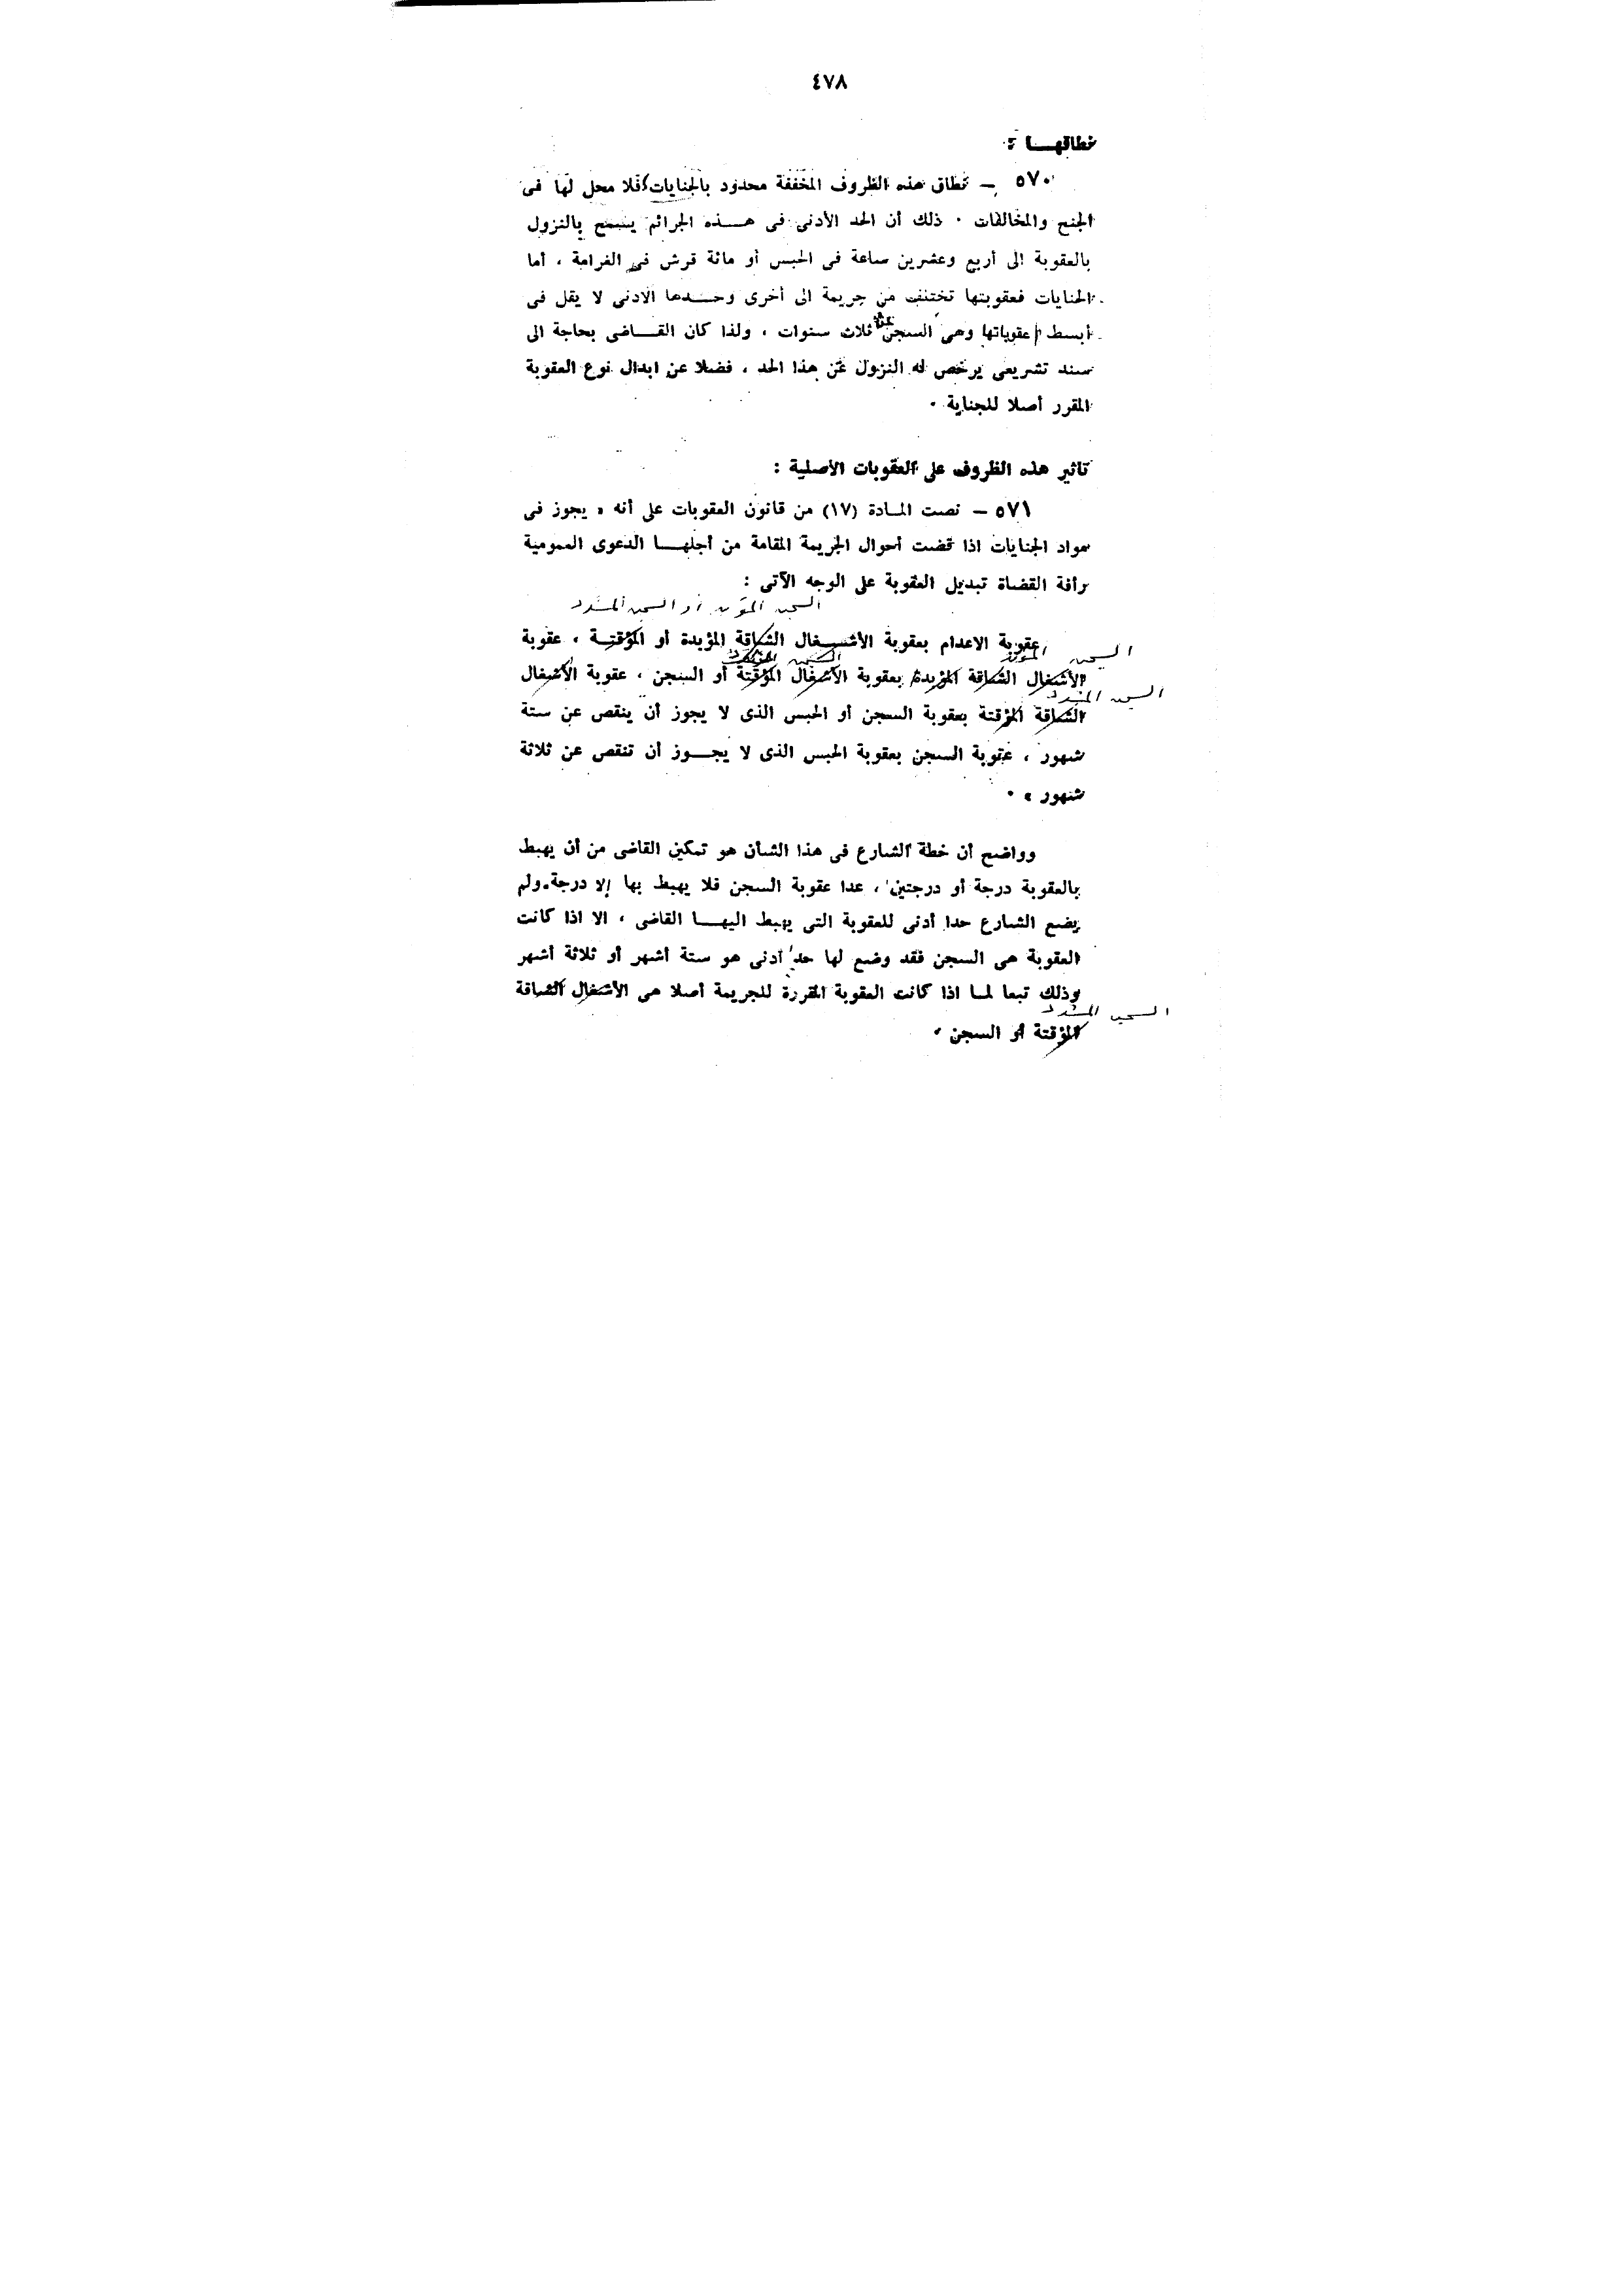 ٤٧٨
نطاقهــا :
٥٧٠ – نطاق هذه الظروف المخففة محدود بالجنايات، فلا محل لها فى
الجنح والمخالفات ٠ ذلك أن الحد الأدنى فى هــذه الجرائم يسمح بالنزول
بالعقوبة الى أربع وعشرين ساعة فى الحبس أو مائة قرش فى الغرامة ، أما
الجنايات فعقوبتها تختلف من جريمة الى أخرى وحــدها الادنى لا يقل فى
أبسط عقوباتها وهى السجن عن ثلاث سنوات ، ولذا كان القــاضى بحاجة الى
سند تشريعى يرخص له النزول عن هذا الحد ، فضلا عن ابدال نوع العقوبة
المقرر أصلا للجناية ٠
تأثير هذه الظروف على العقوبات الأصلية :
٥٧١ – نصت المــادة (١٧) من قانون العقوبات على أنه « يجوز فى
مواد الجنايات اذا قضت أحوال الجريمة المقامة من أجلهــا الدعوى العمومية
رأفة القضاة تبديل العقوبة على الوجه الآتى :
السجن المؤبد أو السجن المشدد
عقوبة الاعدام بعقوبة الأشــغال الشاقة المؤبدة أو المؤقتــة ، عقوبة
السجن المؤبد السجن المشدد
الأشغال الشاقة المؤبدة بعقوبة الأشغال المؤقتة أو السجن ، عقوبة الأشغال
السجن المشدد
الشاقة المؤقتة بعقوبة السجن أو الحبس الذى لا يجوز أن ينقص عن ستة
شهور ، عقوبة السجن بعقوبة الحبس الذى لا يجــوز أن تنقص عن ثلاثة
شهور » ٠
وواضح أن خطة الشارع فى هذا الشأن هو تمكين القاضى من أن يهبط
بالعقوبة درجة أو درجتين ، عدا عقوبة السجن فلا يهبط بها إلا درجة٠ولم
يضع الشارع حدا أدنى للعقوبة التى يهبط اليهــا القاضى ، الا اذا كانت
العقوبة هى السجن فقد وضع لها حدا أدنى هو ستة أشهر أو ثلاثة أشهر
وذلك تبعا لمــا اذا كانت العقوبة المقررة للجريمة أصلا هى الأشغال الشاقة
السجن المشدد
المؤقتة أو السجن ٠